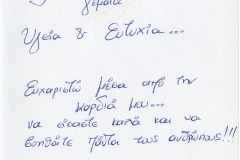 γεμάτα
Υγεία & Ευτυχία...
Ευχαριστώ μέσα από την
καρδιά μου...
να είσαστε καλά και να
βοηθάτε πάντα τους ανθρώπους!!!